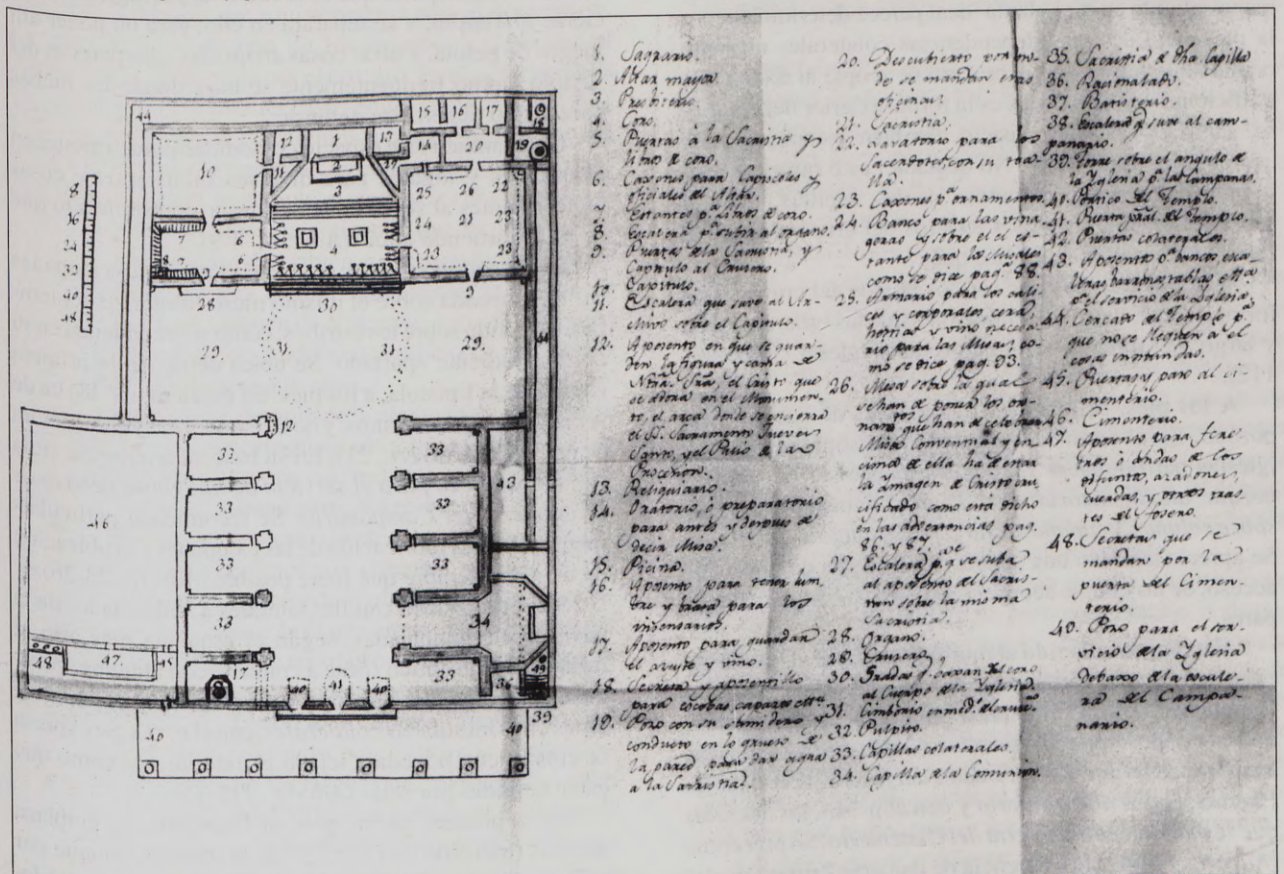 1. Sagrario.
2. Altar mayor.
3. Presbiterio.
4. Coro.
5. Puertas à la Sacristia y
Libros de coro.
6. Caxones para Capiscoles y
oficiales del Altar.
7. Estantes pª. Libros de coro.
8. Escalera pª. subir al organo.
9. Puertas de la Sacristia, y
Capitulo al Crucero.
10. Capitulo.
11. Escalera que save al Ar-
chivo sobre el Capitulo.
12. Aposento en que se guar-
den la figura y cama de
Ntra. Srª., el Cristo que
se adora en el Monumen-
to, el arca donde se encierra
el SS. Sacramento Jueves
Santo, y el Palio de las
Procesiones.
13. Reliquiario.
14. Oratorio, ò preparatorio
para antes y despues de
decir Misa.
15. Picina.
16. Aposento para tener lum-
bre y brasa para los
incensarios.
17. Aposento para guardar
el azeyte y vino.
18. Secreta y aposentillo
para escobas, capazos ettª.
19. Pozo con su
conducto en lo grueso de
la pared para dar agua
a la Sacristia.
20. Descubierto por on-
de se mandan estas
oficinas.
21. Sacristia.
22. Lavatorio para los
Sacerdotes con su toa-
lla.
23. Caxones pª. ornamentos.
24. Banco para las vina-
geras y sobre el el es-
tante para los Misales
como se dice pag. 88.
25. Armario para los cali-
ces y corporales, cera,
hostias y vino necesa-
rio para las Misas, co-
mo se dice pag. 93.
26. Mesa sobre la qual
se han de poner los or-
natos que han de celebrar
Misa Conventual y en-
cima de ella ha de estar
la Imagen de Cristo cru-
cificado como esta dicho
en las advertencias pag.
86. y 87.
27. Escalera pª. q se suba
al aposento del Sacris-
tan sobre la misma
Sacristia.
28. Organo.
29. Crucero.
30. Gradas q. baxan del coro
al Cuerpo de la Iglesia.
31. Cimborio enmed. del cruce
32. Pulpito.
33. Capillas colaterales.
34. Capilla de la Comunion.
35. Sacristia de dha. Capilla
36. Racionalado.
37. Batisterio.
38. Escalera q sube al cam-
panario.
39. Torre sobre el angulo de
la Iglesia pª. las campanas.
41. Portico del Templo.
41. Puerta pral. del Templo.
42. Puertas colaterales.
43. Aposento pª. bancos, esca-
leras, tablas ettª.
pª. el servicio de la Iglesia.
44. Cercado del Templo pª.
que no se lleguen à el
cosas inmundas.
45. Puertas y paso al ci-
menterio.
46. Cimenterio.
47. Aposento para fere-
tros ò andas de los
difuntos, azadones,
cuerdas, y otros tras-
tes del fosero.
48. Secretas que se
mandan por la
puerta del Cimen-
terio.
49. Pozo para el ser-
vicio de la Iglesia
debaxo de la escale-
ra del Campa-
nario.
8
16
24
32
40
48
44
10
12
1
13
15
16
17
18
14
20
19
11
2
27
3
25
26
22
7
6
24
21
23
4
8
7
9
6
23
23
28
30
9
29
31
31
29
44
12
33
33
43
33
33
46
33
33
33
34
48
47
45
17
40
41
40
33
36
49
39
40
40